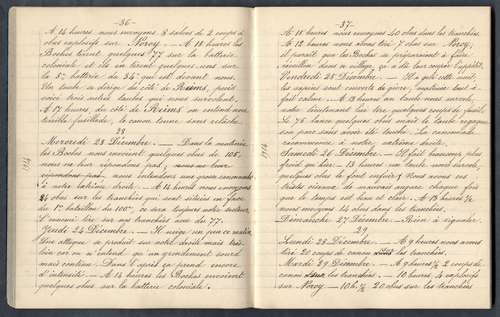 -36-
A 14 heures nous envoyons 8 salves de 2 coups d'
obus explosifs sur Néroy. — A 18 heures les
Boches tirent quelques 77 sur la batterie
coloniale et ils en tirent quelques uns sur
la 5e batterie du 34e qui est devant nous.
Un taube se dirige du côté de Reims, puis
voici trois autres taubes qui nous survolent.
A 17 heures du côté de Reims on entend une
terrible fusillade, le canon tonne sans relâche.
28
Mercredi 23 Décembre. — Dans la matinée
les Boches nous envoient quelques obus de 105,
nous ne leur répondons pas,
répondons pas nous entendons une grosse canonnade
à notre extrême droite. — A 14 heures nous envoyons
24 obus sur les tranchées qui sont situées en face
du 1er bataillon du 100e, ce dans toujours notre secteur.
L'ennemi tire sur nos tranchées avec du 77.
Jeudi 24 Décembre. — Il neige un peu ce matin.
Une attaque se produit sur notre droite mais très
loin car on n'entend qu'un grondement sourd
mais continu. Dans l'après ça prend encore
d'intensité — A 14 heures les Boches envoient
quelques obus sur la batterie coloniale.
1914
-37-
A 18 heures nous envoyons 40 obus dans les tranchées.
A 12 heures nous avons tiré 7 obus sur Néroy,
il paraît que les Boches se préparaient à faire
réveillon dans ce village, ça a dû leur couper l'appétit.
Vendredi 25 Décembre. — Il a gelé cette nuit,
les sapins sont couverts de givre, matinée tout à
fait calme. — A 13 heures un taube nous survole,
notre lieutenant lui tire quelques coups de fusil.
Le 75 lance quelques obus mais le taube regagne
son parc sans avoir été touché. La canonnade
recommence à notre extrême droite.
Samedi 26 Décembre. — Il fait beaucoup plus
froid qu'hier. — 13 heures un taube nous survole,
quelques obus le font enfuir. Nous avons ces
tristes oiseaux de mauvais augure chaque fois
que le temps est beau et clair. — A 13 heures 1/2
nous envoyons 14 obus dans les tranchées.
Dimanche 27 Décembre. — Rien à signaler.
29
Lundi 28 Décembre. — A 9 heures nous avons
tiré 20 coups de canon sur les tranchées.
Mardi 29 Décembre. — A 9 heures 1/4 2 coups de
canon sur les tranchées. — 10 heures, 4 explosifs
sur Néroy — 10h 1/2 20 obus sur les tranchées
1914